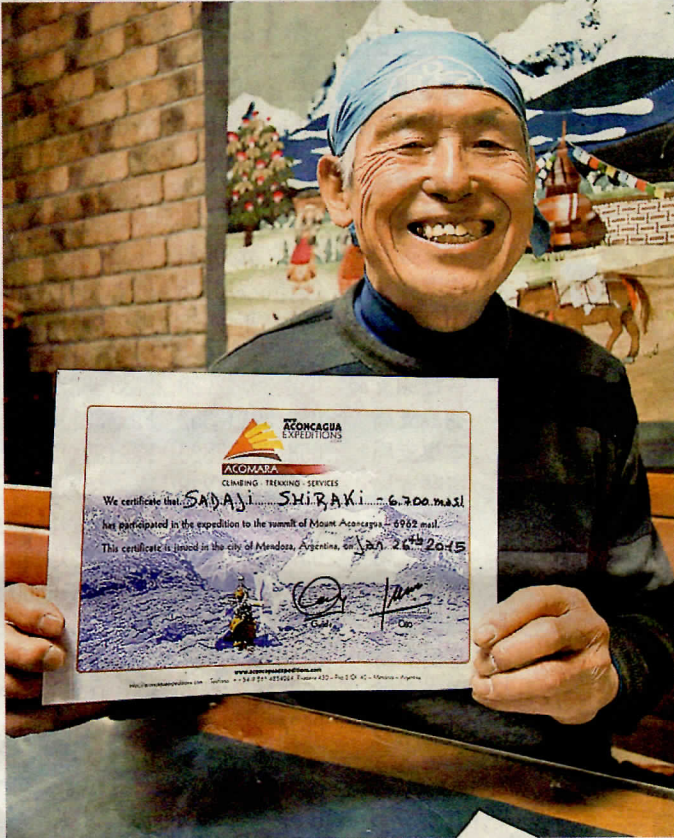 www
ACONCAGUA
EXPEDITIONS
.com
ACOMARA
CLIMBING - TREKKING - SERVICES
We certificate that SADAJi SHiRAKi - 6.700 masl
has participated in the expedition to the summit of Mount Aconcagua, 6962 masl.
This certificate is issued in the city of Mendoza, Argentina, on Jan 26th 2015
Guide Ceo
www.aconcaguaexpeditions.com
Mendoza - Argentina